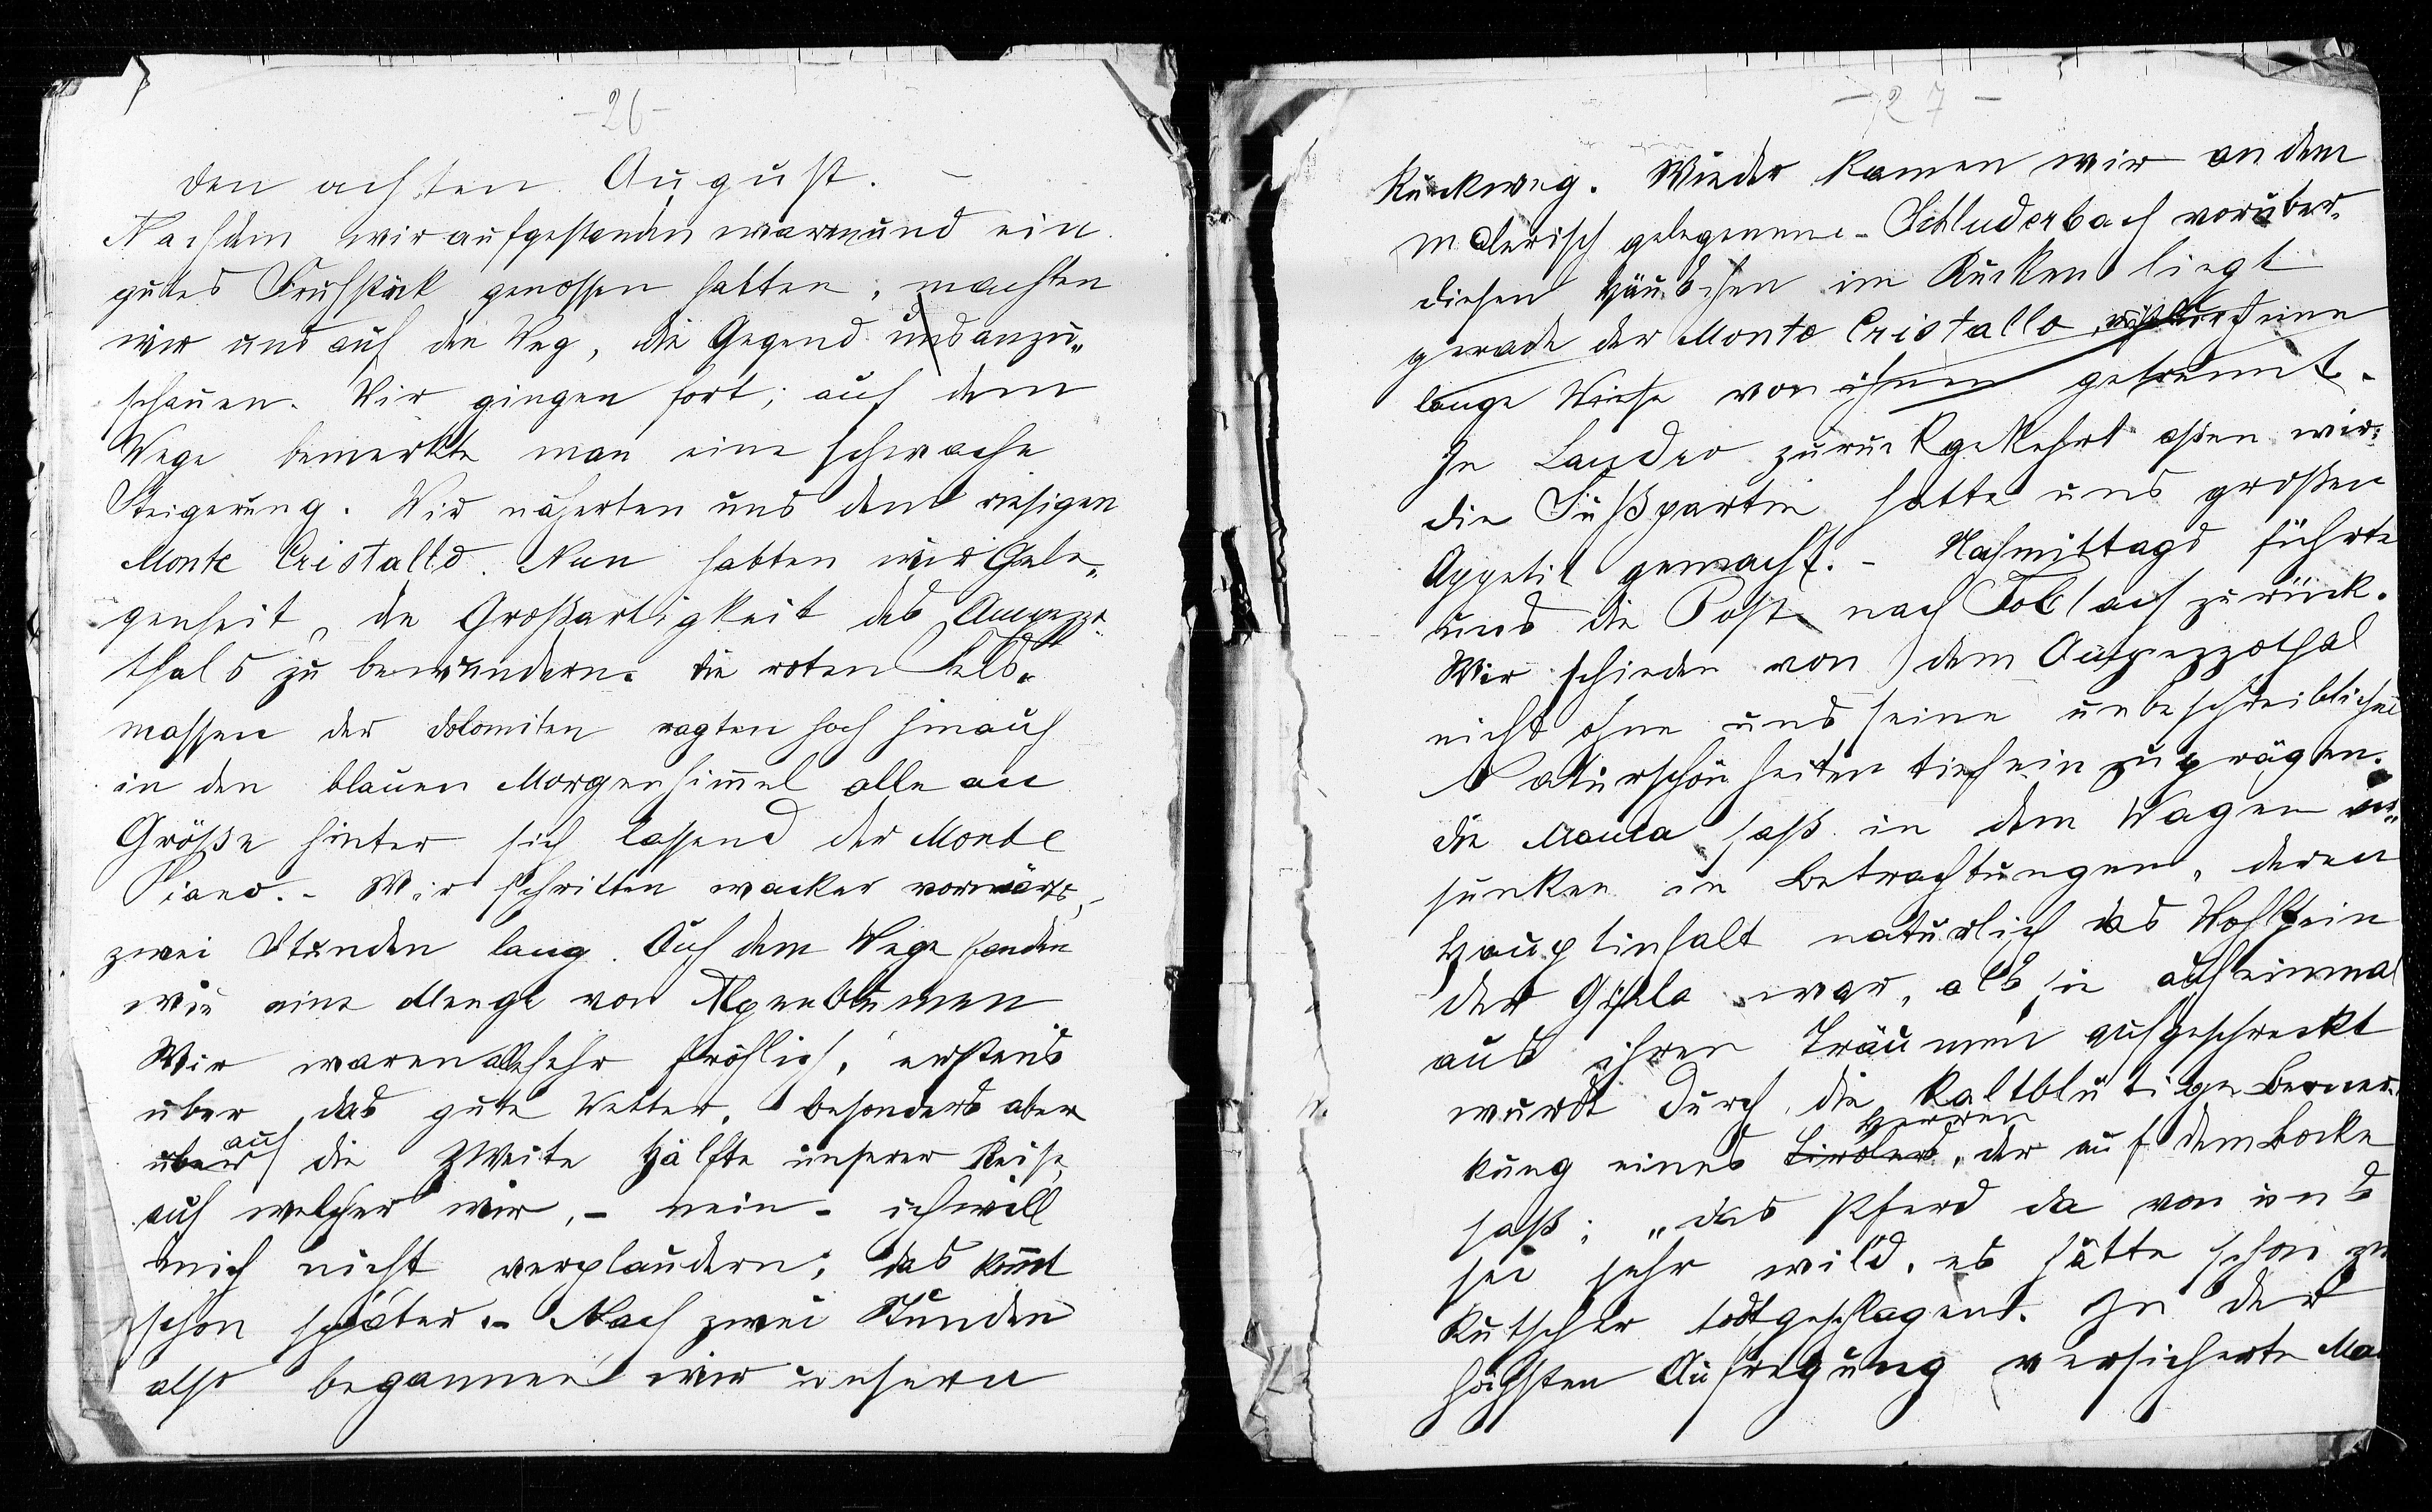 -26-
den achten August. -
Nachdem wir aufgestanden waren und ein
gutes Fruhstück genossen hatten, machten
wir uns auf den Weg, die Gegend uns anzu„
schauen. Wir gingen fort; auf dem
Wege bemerkte man eine schwache
Steigerung. Wir näherten uns dem riesigen
Monte Cristallo. Nun hatten wir Gele„
genheit, die Großartigkeit des Ampezzo„
thals zu bewundern. die roten Fels„
massen der Dolomiten ragten hoch hinauf
in den blauen Morgenhim̄el alle an
Größe hinter sich lassend der Monte
Piano. - Wir schritten wacker vorwärts, -
zwei Stunden lang. Auf dem Wege fanden
wir eine Menge von Alpenblumen
Wir waren alle sehr fröhlich, erstens
uber das gute Wetter, besonders aber
auf
uber die zweite Hälfte unserer Reise,
auf welcher wir, - nein - ich will
mich nicht verplaudern; das kom̄t
schon später. - Nach zwei Stunden
also begannen wir unsern
-27-
Ruckweg. Wieder kamen wir an dem
malerisch gelegenene - Schluderbach voruber.
diesen Häuschen im Rucken liegt
gerade der Monte Cristallo, eine
lange Wiese von ihnen getrennt.
In Landro zuruckgekehrt aßen wir:
die Fußpartie hatte uns großen
Appetit gemacht. - Nachmittags führte
uns die Post nach Toblach zurück.
Wir schieden von dem Ampezzothal
nicht ohne uns seine unbeschreiblichen
Naturschönheiten tief einzuprägen.
die Mama saß in dem Wagen ver„
sunken in Betrachtungen, deren
Hauptinhalt naturlich das Wohlsein
der Gisela war, als sie auf einmal
aus ihren Träumen aufgeschreckt
wurde durch die kaltblutige Bemer„
Herren
kung eines Tirolers, der auf dem Bocke
saß; „das Pferd da von uns
sei sehr wild, es hätte schon zwei
Kutscher todtgeschlagen". In der
höchsten Aufregung versicherte Ma